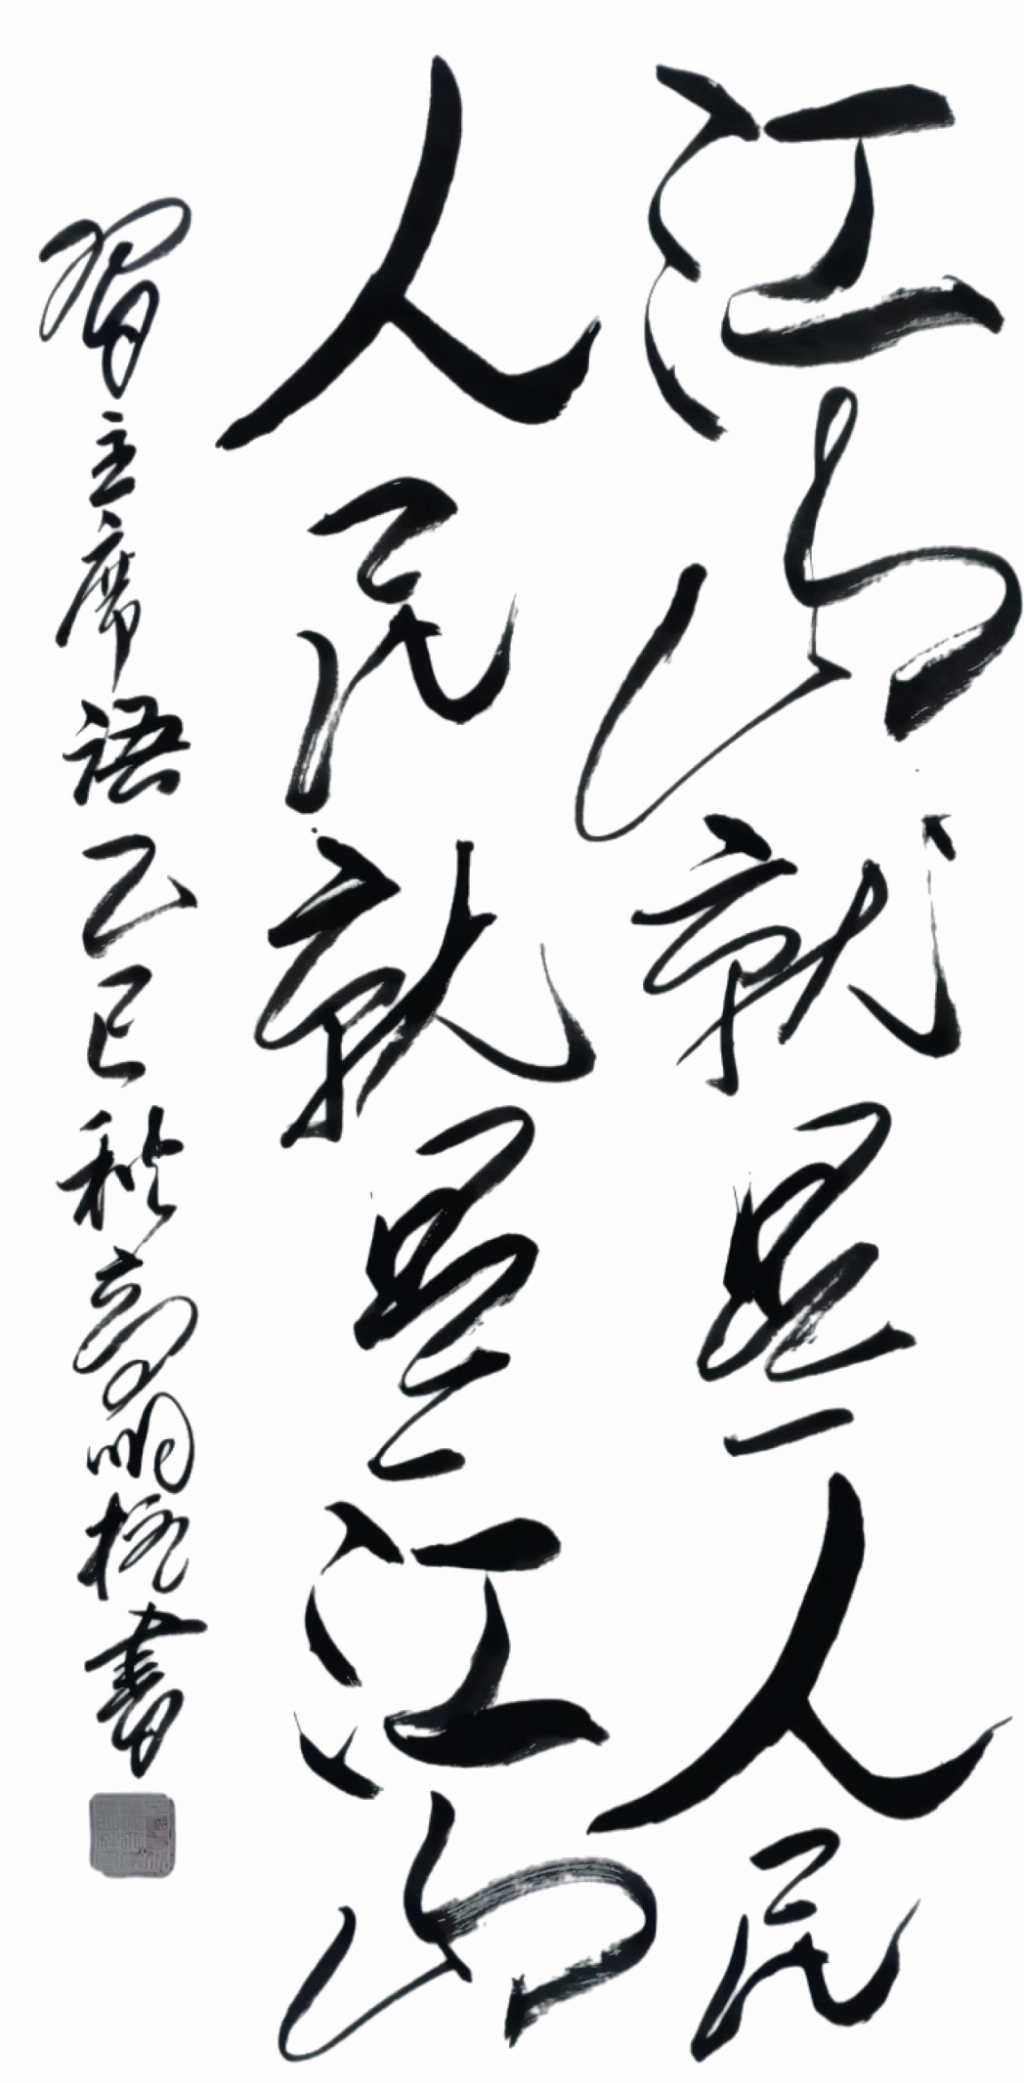 江山就是人民
人民就是江山
习主席语乙巳秋刘明杭書